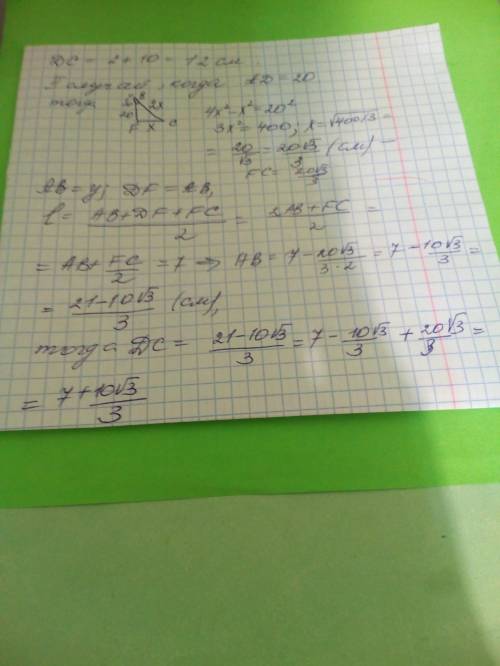 DC = 2 + 10 = 12 см
II случай, когда AD = 20
тогда 4x² - x² = 20²
20 2x F x C
3x² = 400; x = √400/3 =
= 20/√3 = 20√3/3 (см) -
FC = 20√3/3
AB = y; DF = AB,
l = (AB + DF + FC)/2 = (2AB + FC)/2 =
= AB + FC/2 = 7 => AB = 7 - 20√3/(3·2) = 7 - 10√3/3 =
= (21 - 10√3)/3 (см),
тогда DC = (21 - 10√3)/3 = 7 - 10√3/3 + 20√3/3 =
= (7 + 10√3)/3